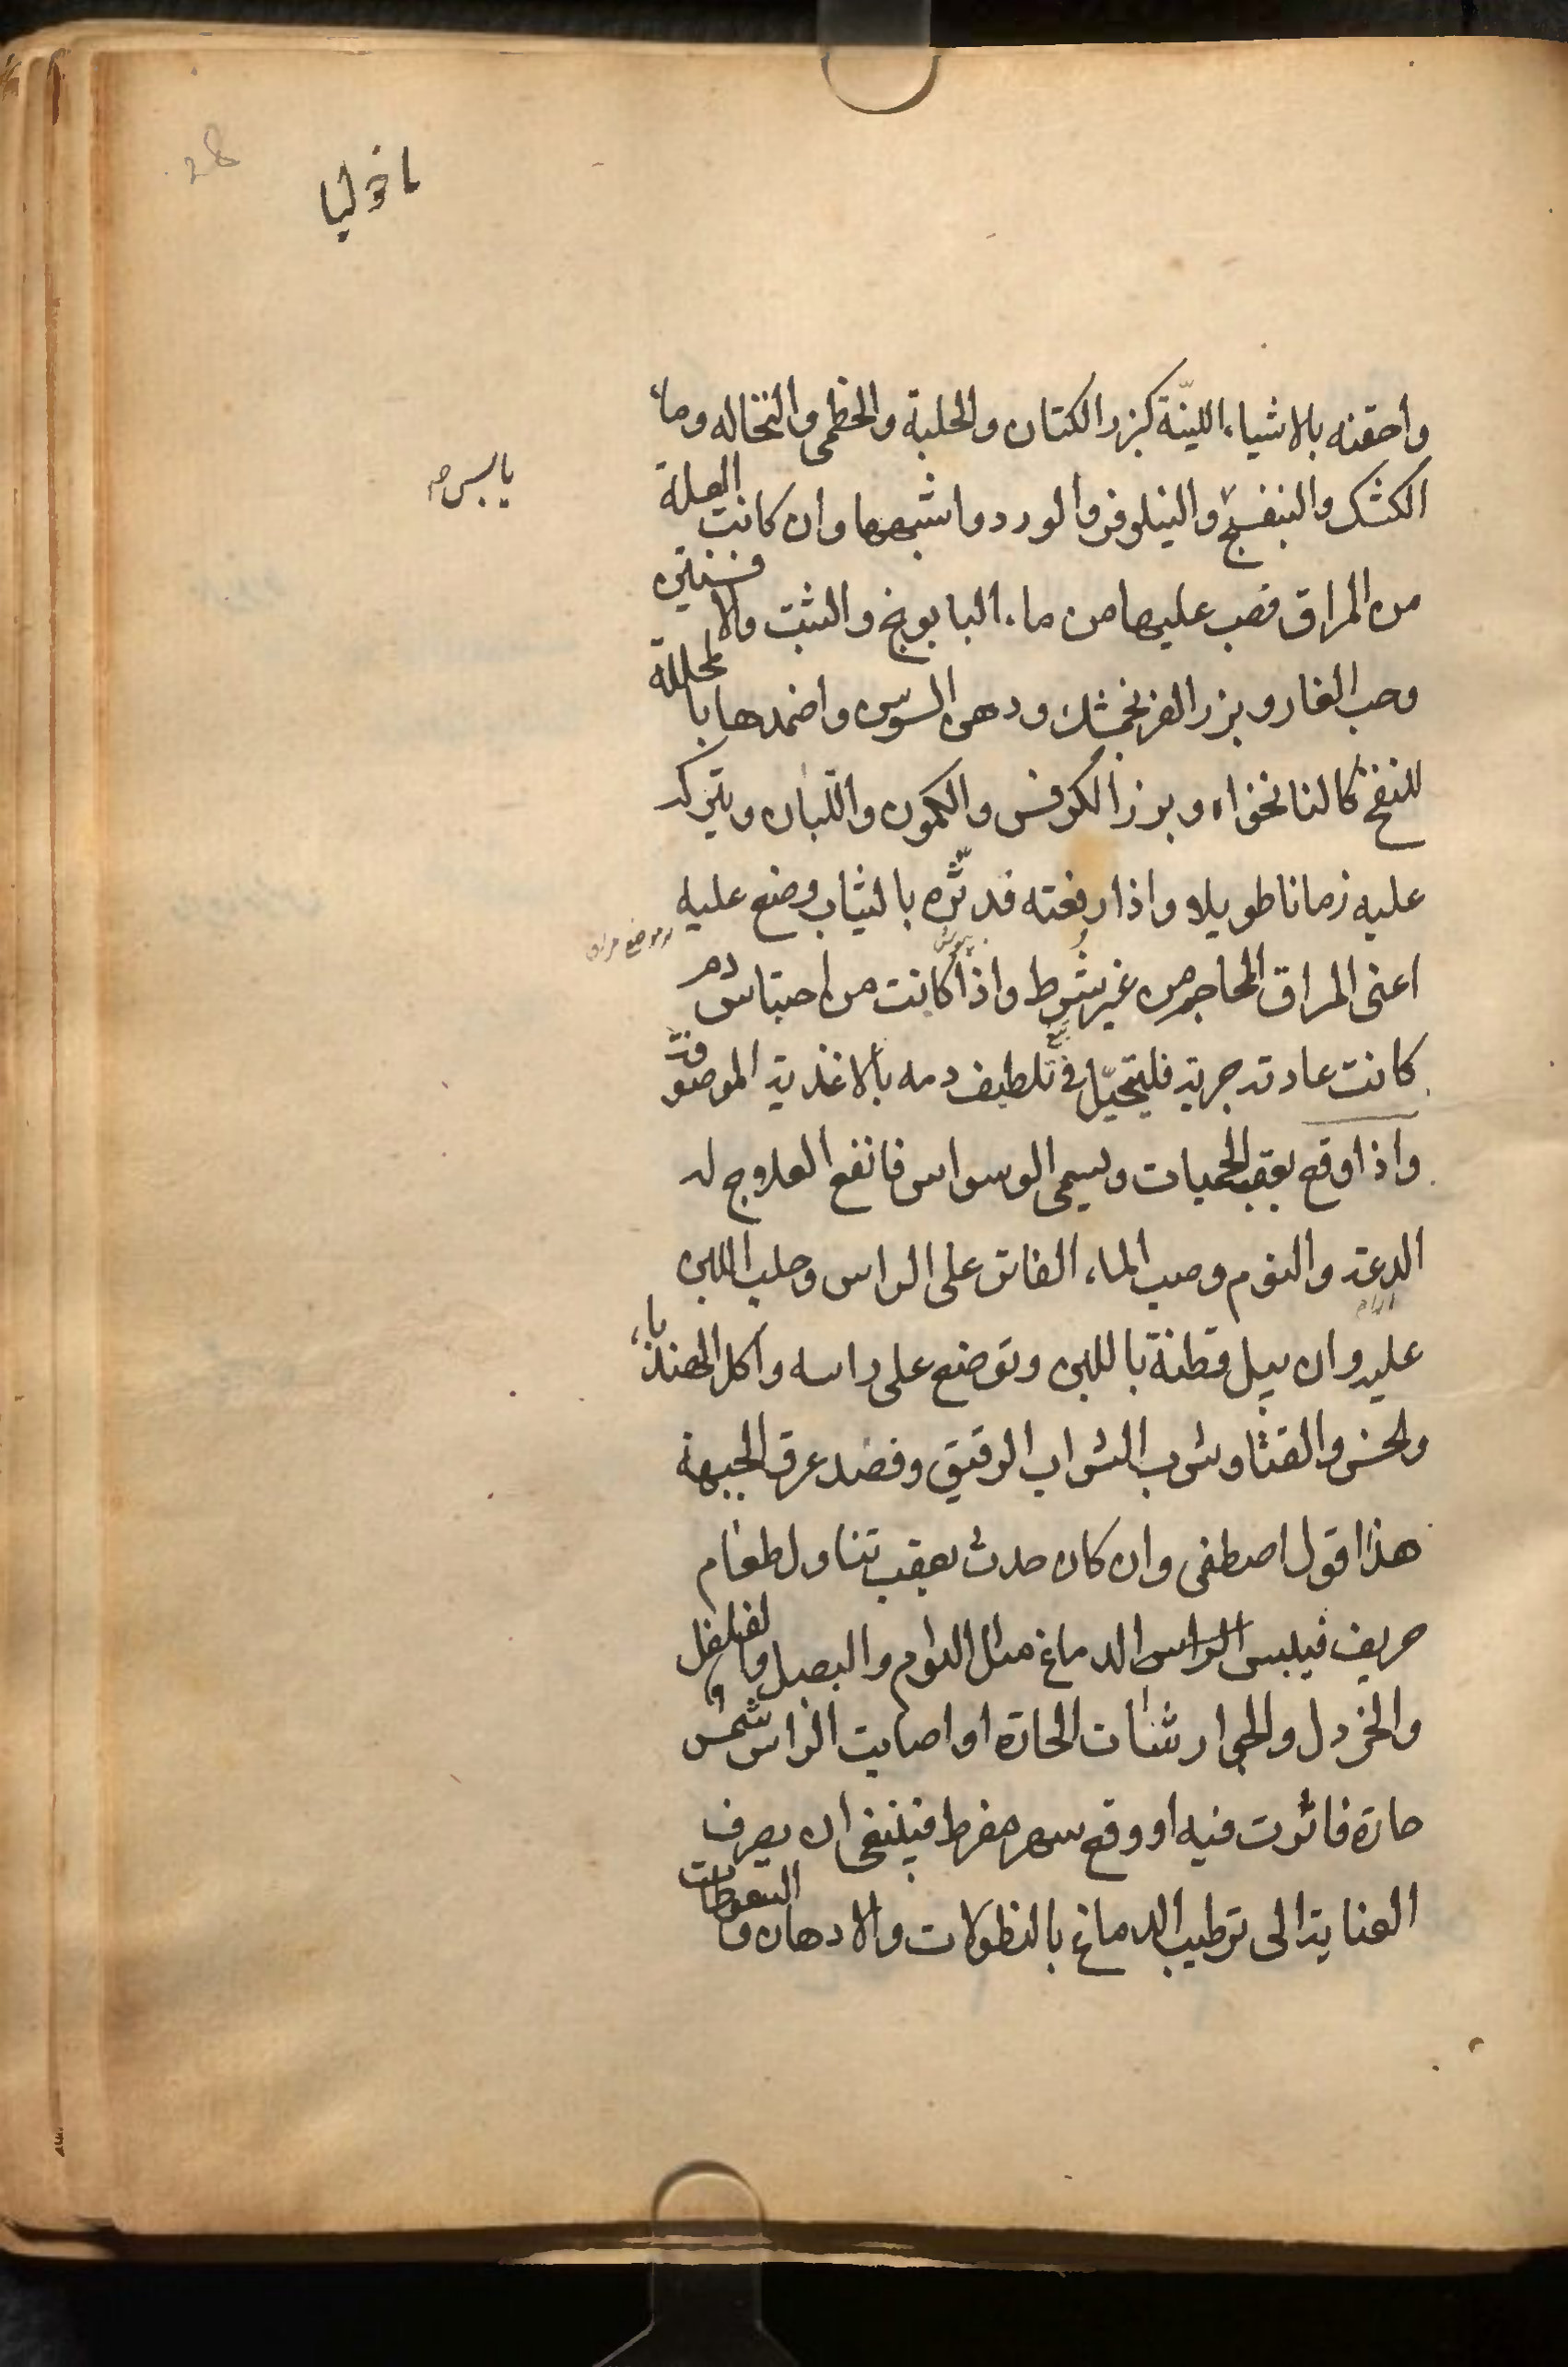 28
ماخوليا
واحقنه بالاشياء اللينّة كبزر الكتان والحلبة والخطمى والنخاله وماء
الكشك والبنفسج والنيلوفر والورد وما اشبهها وان كانت العلة
من المراق فصب عليها من ماء البابونج والشبت والافسنتين
وحب الغار وبزر الفرنجمشك ودهن السوسن واضمدها بالمحللة
للنفخ كالنانخواه وبزر الكرفس والكمون واللبان ويترك
عليه زمانا طويلا واذا رفعته فدثّره بالثياب وضع عليه
اعنى المراق المحاجم من غير شرط واذا كانت من احتباس دم
كانت عادته جرية فليتحيّل فى تلطيف دمه بالاغذية الموصوفة
واذا وقع بعقب الحميات ويسمى الوسواس فانفع العلاج له
الدعة والنوم وصب الماء الفاتر على الراس وحلب اللبن
عليه وان يبل قطنة باللبن وتوضع على راسه واكل الهندباء
والخس والقثا وشرب الشراب الرقيق وفصد عرق الجبهة
هذا قول اصطفى وان كان حدث بعقب تناول طعام
حريف فيلبس الراس الدماغ مثل الثوم والبصل والفلفل
والخردل والجوارشنات الحارة او اصابت الراس شمس
حارة فاثرت فيه او وقع سهر مفرط فينبغى ان يصرف
العناية الى ترطيب الدماغ بالنطولات والادهان والسعوطات